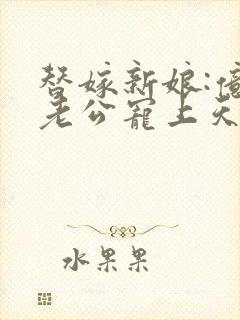 替嫁新娘:億
老公寵上天
水果果